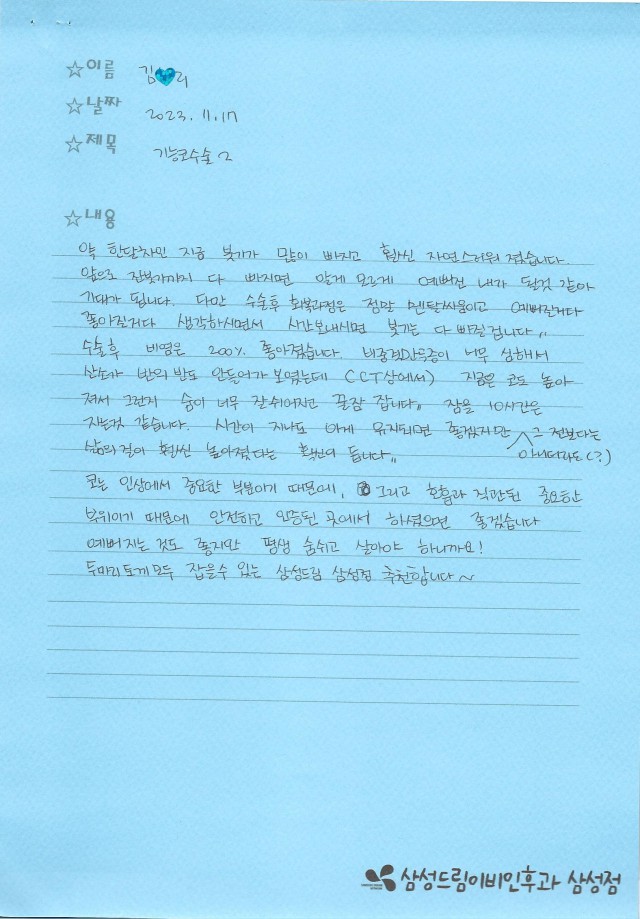 ☆이름 김💙리
☆날짜 2023. 11. 17
☆제목 기능코수술 2
☆내용
약 한달차인 지금 붓기가 많이 빠지고 훨씬 자연스러워졌습니다.
앞으로 잔붓기까지 다 빠지면 알게 모르게 예뻐진 내가 될것 같아
기대가 됩니다. 다만 수술후 회복과정은 정말 멘탈싸움이고 예뻐질거다
좋아질거다 생각하시면서 시간보내시면 붓기는 다 빠질겁니다,,
수술후 비염은 200% 좋아졌습니다. 비중격만곡증이 너무 심해서
산소가 반의 반도 안들어가 보였는데 (CCT상에서) 지금은 코도 높아
져서 그런지 숨이 너무 잘쉬어지고 꿀잠 잡니다,, 잠을 10시간은
자는것 같습니다. 시간이 지나도 이게 유지되면 좋겠지만 그 전보다는
아니더라도(?)
삶의 질이 훨씬 높아졌다는 확신이 듭니다,,
코는 인상에서 중요한 부분이기 때문에, 그리고 호흡과 직관된 중요한
부위이기 때문에 안전하고 인증된 곳에서 하셨으면 좋겠습니다
예뻐지는 것도 좋지만 평생 숨쉬고 살아야 하니까요!
두마리 토끼 모두 잡을수 있는 삼성드림 삼성점 추천합니다~
삼성드림이비인후과 삼성점